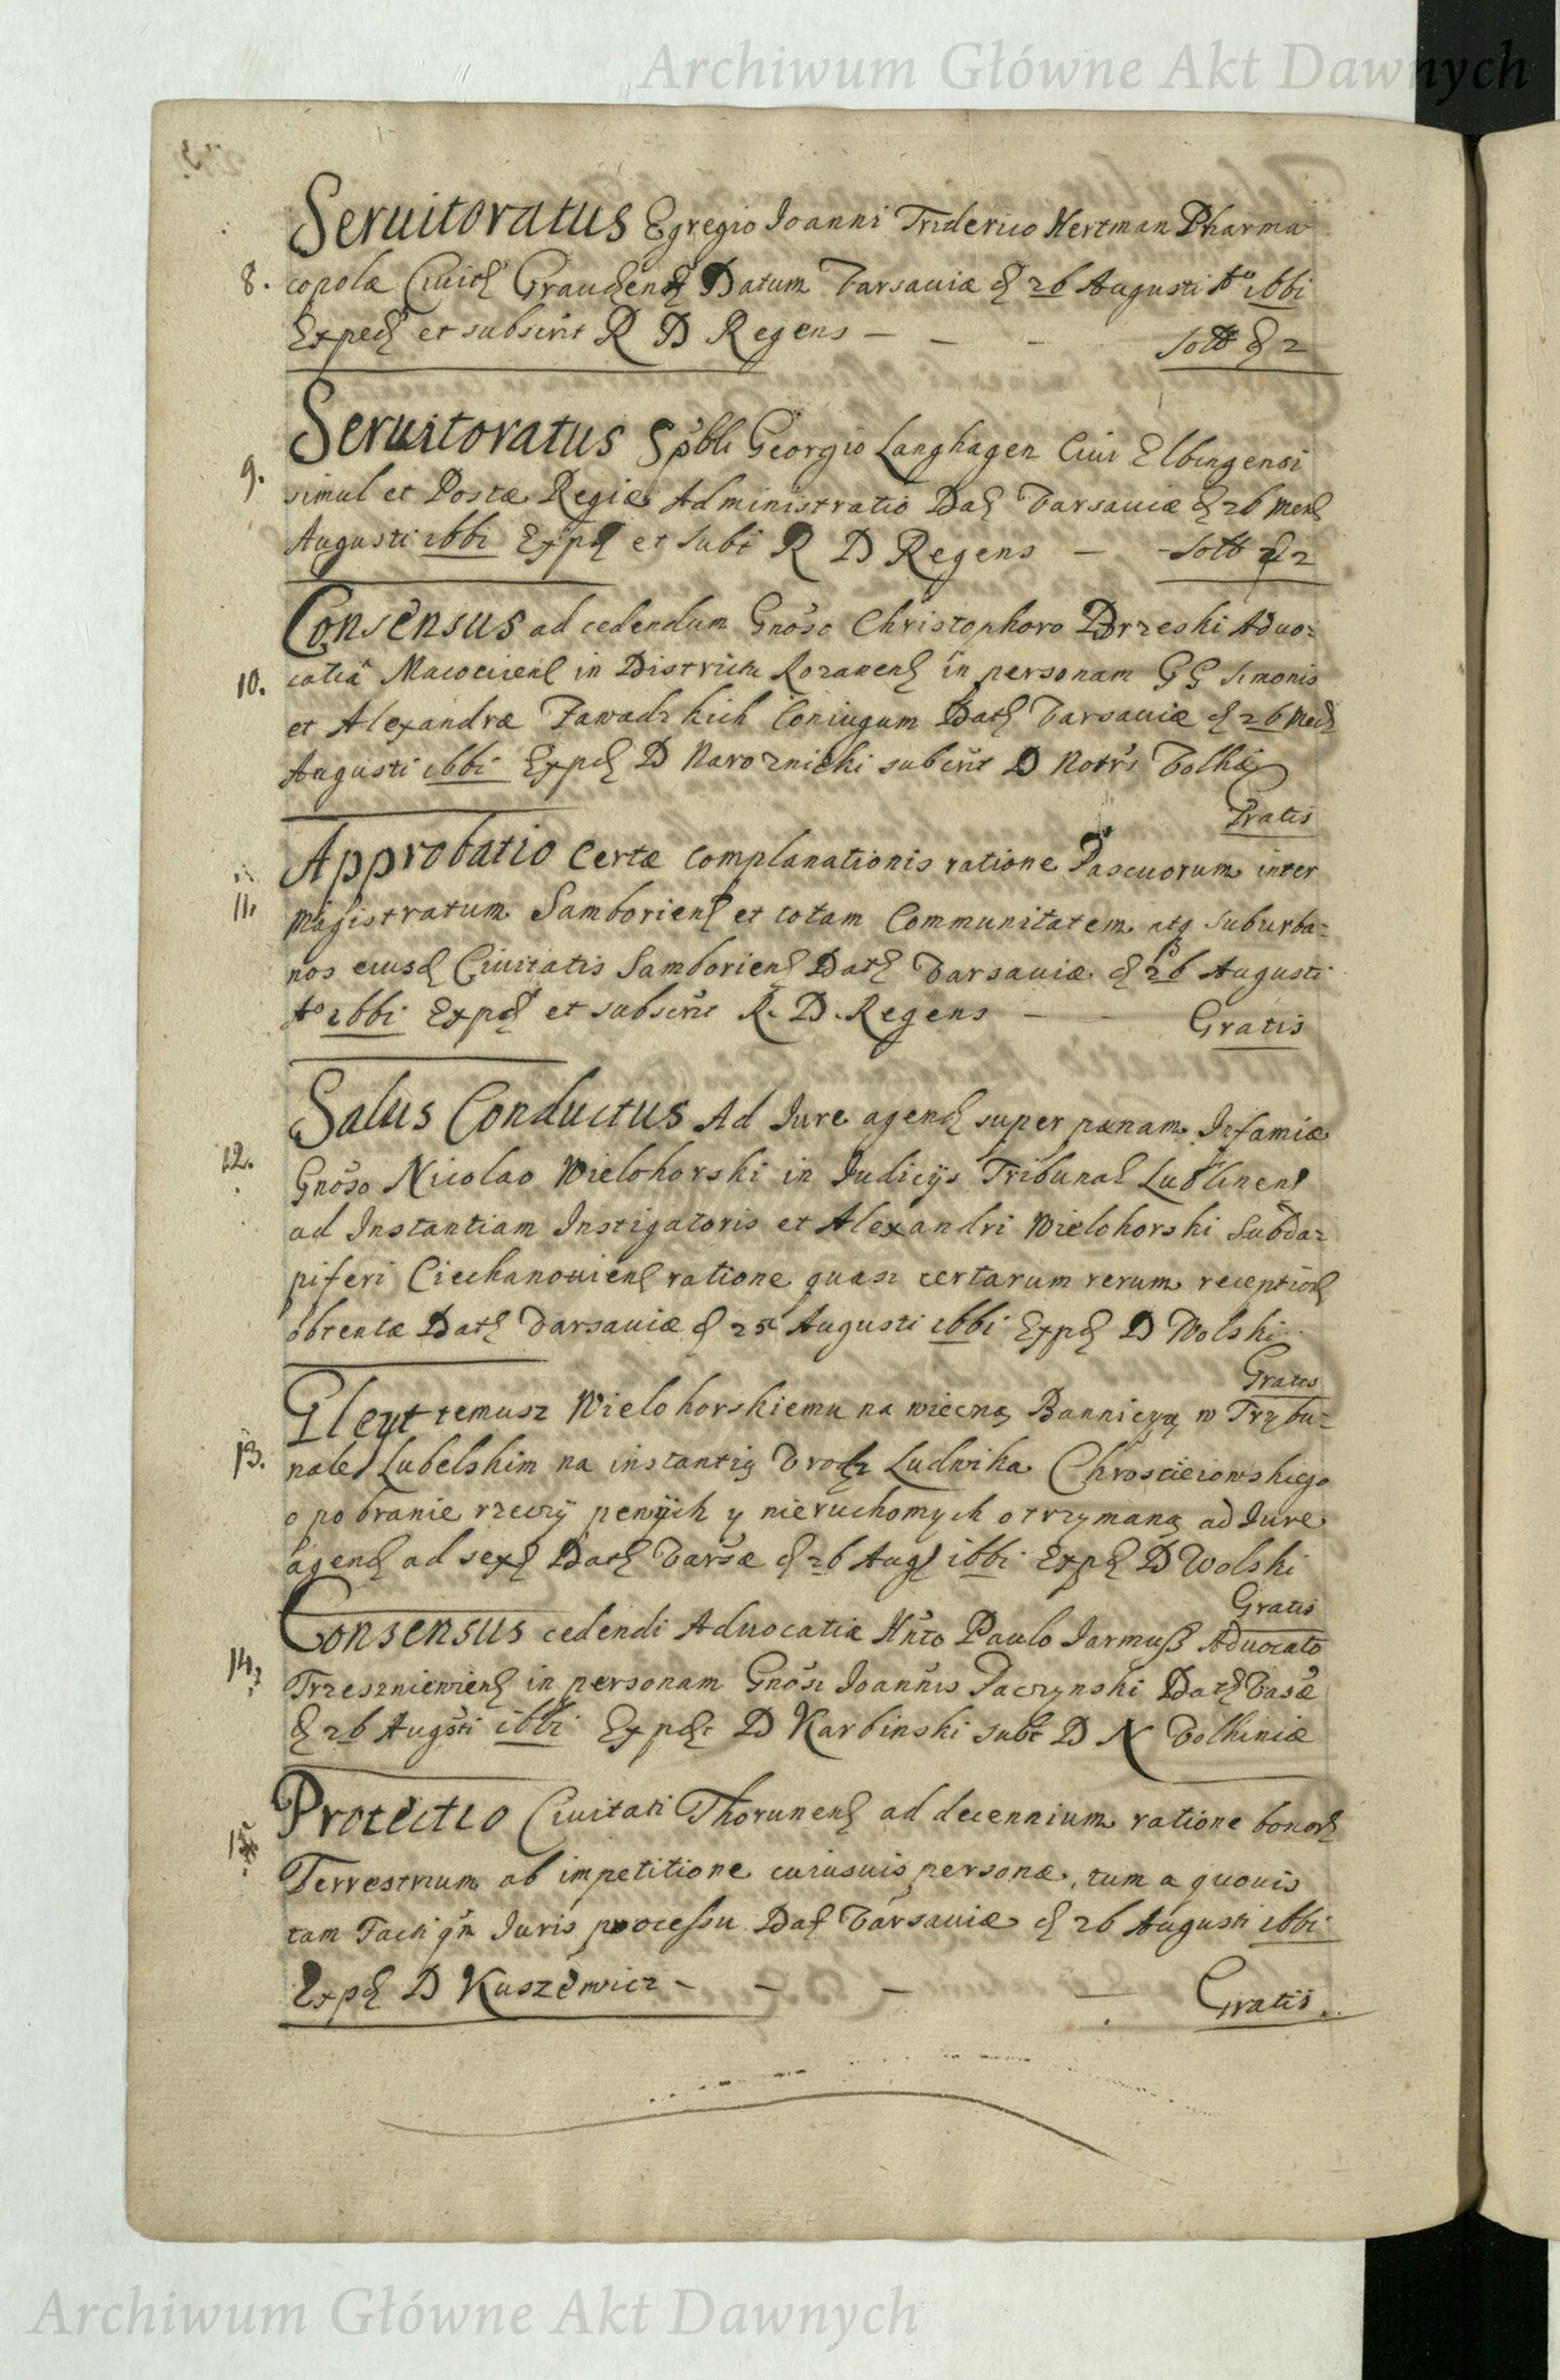 Archiwum Główne Akt Dawnych
Seruitoratus Egregio Joanni Friderico Hertman Pharma
8. copolæ Ciuitę Graudenę Datum Varsauiæ ę 26 Augusti Ao 1661
Expedę et subscrit R D Regens — — — sott ę 2
Seruitoratus Spbli Georgio Langhagen Ciui Elbingensi
9. simul et Postæ Regiæ Administratio Datę Varsauiæ ę 26 Mensę
Augusti 1661 Expdę et subt R D Regens — - sott ę 2
Consensus ad cedendum Gnoso Christophoro Brzeski Aduo:
10. catiâ Macocienę in Districtu Rozanenę in personam GG Simonis
et Alexandræ Zawadzkich Coniugum Datę Varsauiæ ę 26
Augusti 1661 Expdę D Naroznicki subcrit D Notrs Volhiæ
Gratis
Approbatio Certæ Complanationis ratione Pascuorum inter
11. Magistratum Samborienę et totam Communitatem atq suburba:
nos eiusdę Ciuitatis Samborienę Datę Varsauiæ ę 26 Augusti
Ao 1661 Expdę et subscrit R. D. Regens — — Gratis
Saluus Conductus Ad Jure agendę super pænam Infamiæ
12. Gnoso Nicolao Wielohorski in Judicijs Tribunalę Lublinenę
ad Instantiam Instigatoris et Alexandri Wielohorski Subda:
piferi Ciechanouienę ratione quasi certarum rerum receptionę
obtentæ Datę Varsauiæ ę 25 Augusti 1661 Expdę D Wolski
Gratis
Gleyt temusz Wielohorskiemu na wieczną Bannicyą w Trybu:
13. nale Lubelskim na instantią Urodz Ludwika Chroscieiowskiego
o pobranie rzeczy pewnych y nieruchomych otrzymaną ad Jure
agendę ad sexę Datę Varsæ ę 26 Augę 1661 Expdę D Wolski
Gratis
Consensus cedendi Aduocatiæ Hnto Paulo Jarmusz Aduocato
14. Trzesniewienę in personam Gnosi Joannis Paczynski Datę Vasæ
ę 26 Augsti 1661 Expdę D Karbinski subt D N Volhiniæ
Protectio Ciuitati Thorunenę ad decennium ratione bonorę
15. Terrestrium ab impetitione cuiusuis personæ, tum a quouis
tam Facti qm Juris processu Datę Varsauiæ ę 26 Augusti 1661
Expdę D Kuszewicz — — — — Gratis.
Archiwum Główne Akt Dawnych